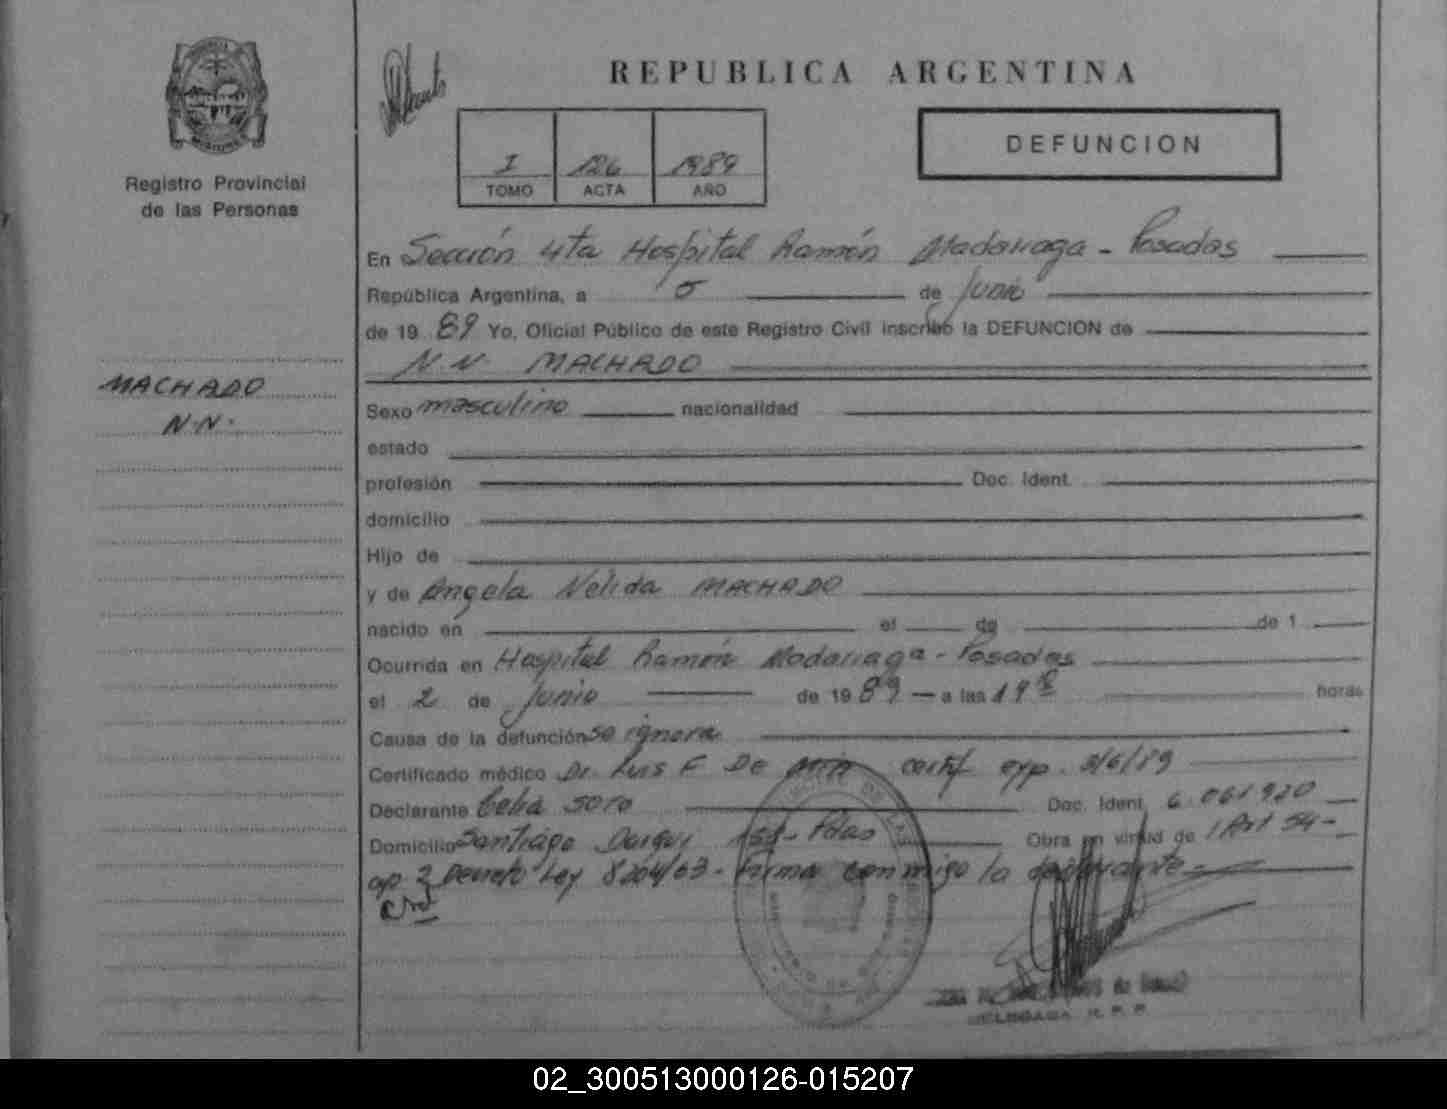 REPUBLICA ARGENTINA
DEFUNCION
I 126 1989
TOMO ACTA AÑO
Registro Provincial
de las Personas
MACHADO
N.N.
En Sección 4ta Hospital Ramón Madariaga - Posadas
República Argentina, a 5 de Junio
de 1989 Yo, Oficial Público de este Registro Civil inscribo la DEFUNCION de
N.N. MACHADO
Sexo masculino nacionalidad
estado
profesión Doc. Ident.
domicilio
Hijo de
y de Angela Nélida MACHADO
nacido en el de de 1
Ocurrida en Hospital Ramón Madariaga - Posadas
el 2 de Junio de 1989 - a las horas
Causa de la defunción se ignora
Certificado médico Dr. Luis F De certif exp.
Declarante Celia Soto Doc. Ident. 6.061.920
Domicilio Santiago - Pdas Obra en virtud de Art 54 -
ap. 2 Decreto Ley 8204/63 - Firma conmigo la declarante -
DELEGADA R. P. P.
02_300513000126-015207